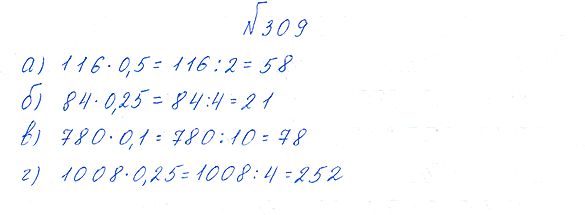 №309
а) 116·0,5=116:2=58
б) 84·0,25=84:4=21
в) 780·0,1=780:10=78
г) 1008·0,25=1008:4=252